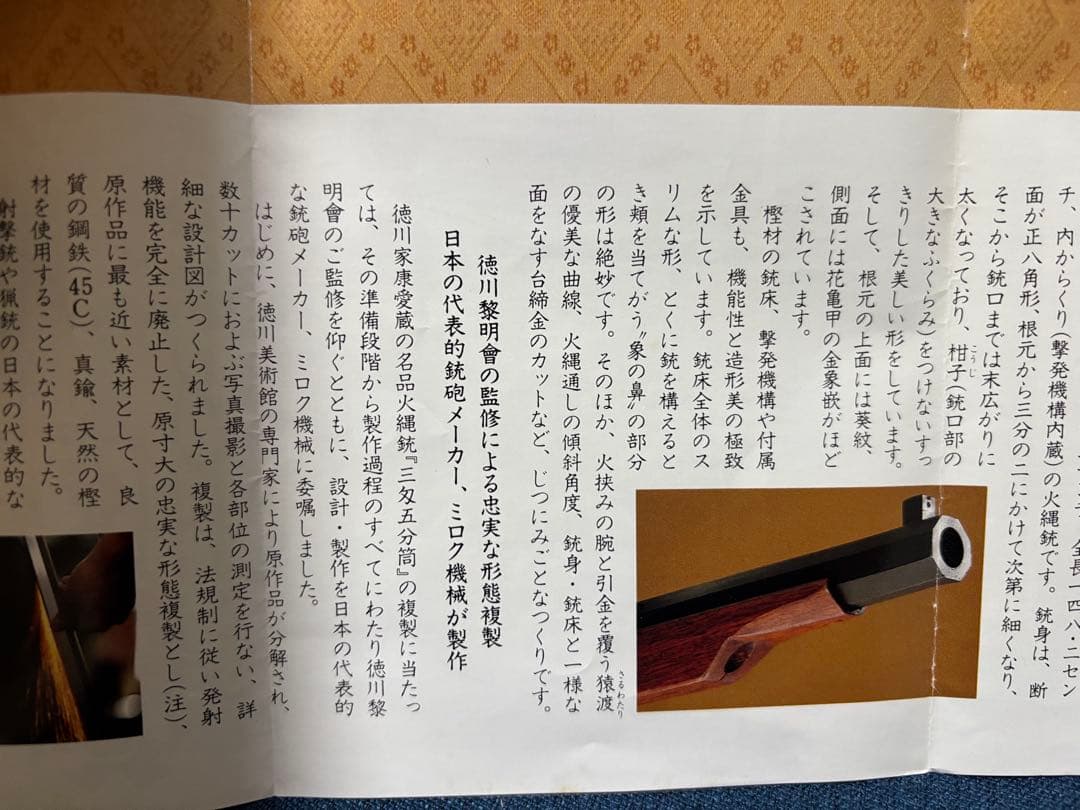 全長一四八・二セン
チ、内からくり(撃発機構内蔵)の火縄銃です。銃身は、断
面が正八角形、根元から三分の二にかけて次第に細くなり、
そこから銃口までは末広がりに
太くなっており、柑子(銃口部の
こうじ
大きなふくらみ)をつけないすっ
きりした美しい形をしています。
そして、根元の上面には葵紋、
側面には花亀甲の金象嵌がほど
こされています。
樫材の銃床、撃発機構や付属
金具も、機能性と造形美の極致
を示しています。銃床全体のス
リムな形、とくに銃を構えると
き頬を当てがう〝象の鼻〟の部分
の形は絶妙です。そのほか、火挟みの腕と引金を覆う猿渡
さるわたり
の優美な曲線、火縄通しの傾斜角度、銃身・銃床と一様な
面をなす台締金のカットなど、じつにみごとなつくりです。
徳川黎明會の監修による忠実な形態複製
日本の代表的銃砲メーカー、ミロク機械が製作
徳川家康愛蔵の名品火縄銃『三匁五分筒』の複製に当たっ
ては、その準備段階から製作過程のすべてにわたり徳川黎
明會のご監修を仰ぐとともに、設計・製作を日本の代表的
な銃砲メーカー、ミロク機械に委嘱しました。
はじめに、徳川美術館の専門家により原作品が分解され、
数十カットにおよぶ写真撮影と各部位の測定を行ない、詳
細な設計図がつくられました。複製は、法規制に従い発射
機能を完全に廃止した、原寸大の忠実な形態複製とし(注)、
原作品に最も近い素材として、良
質の鋼鉄(45C)、真鍮、天然の樫
材を使用することになりました。
射撃銃や猟銃の日本の代表的な